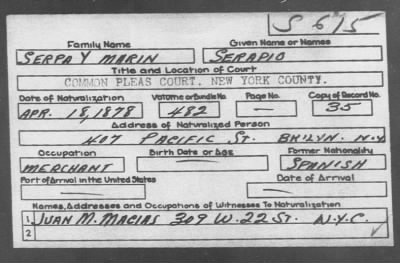 S 615
Family Name Given Name or Names
SERPA Y MARIN SERAPIO
Title and Location of Court
COMMON PLEAS COURT, NEW YORK COUNTY.
Date of Naturalization Volume or Bundle No. Page No. Copy of Record No.
APR. 18, 1878 482 — 35
Address of Naturalized Person
407 PACIFIC ST. BKLYN. N.Y.
Occupation Birth Date or Age Former Nationality
MERCHANT — SPANISH
Port of Arrival in the United States Date of Arrival
— —
Names, Addresses and Occupations of Witnesses To Naturalization
1 JUAN M. MACIAS 309 W. 22 ST. N.Y.C.
2